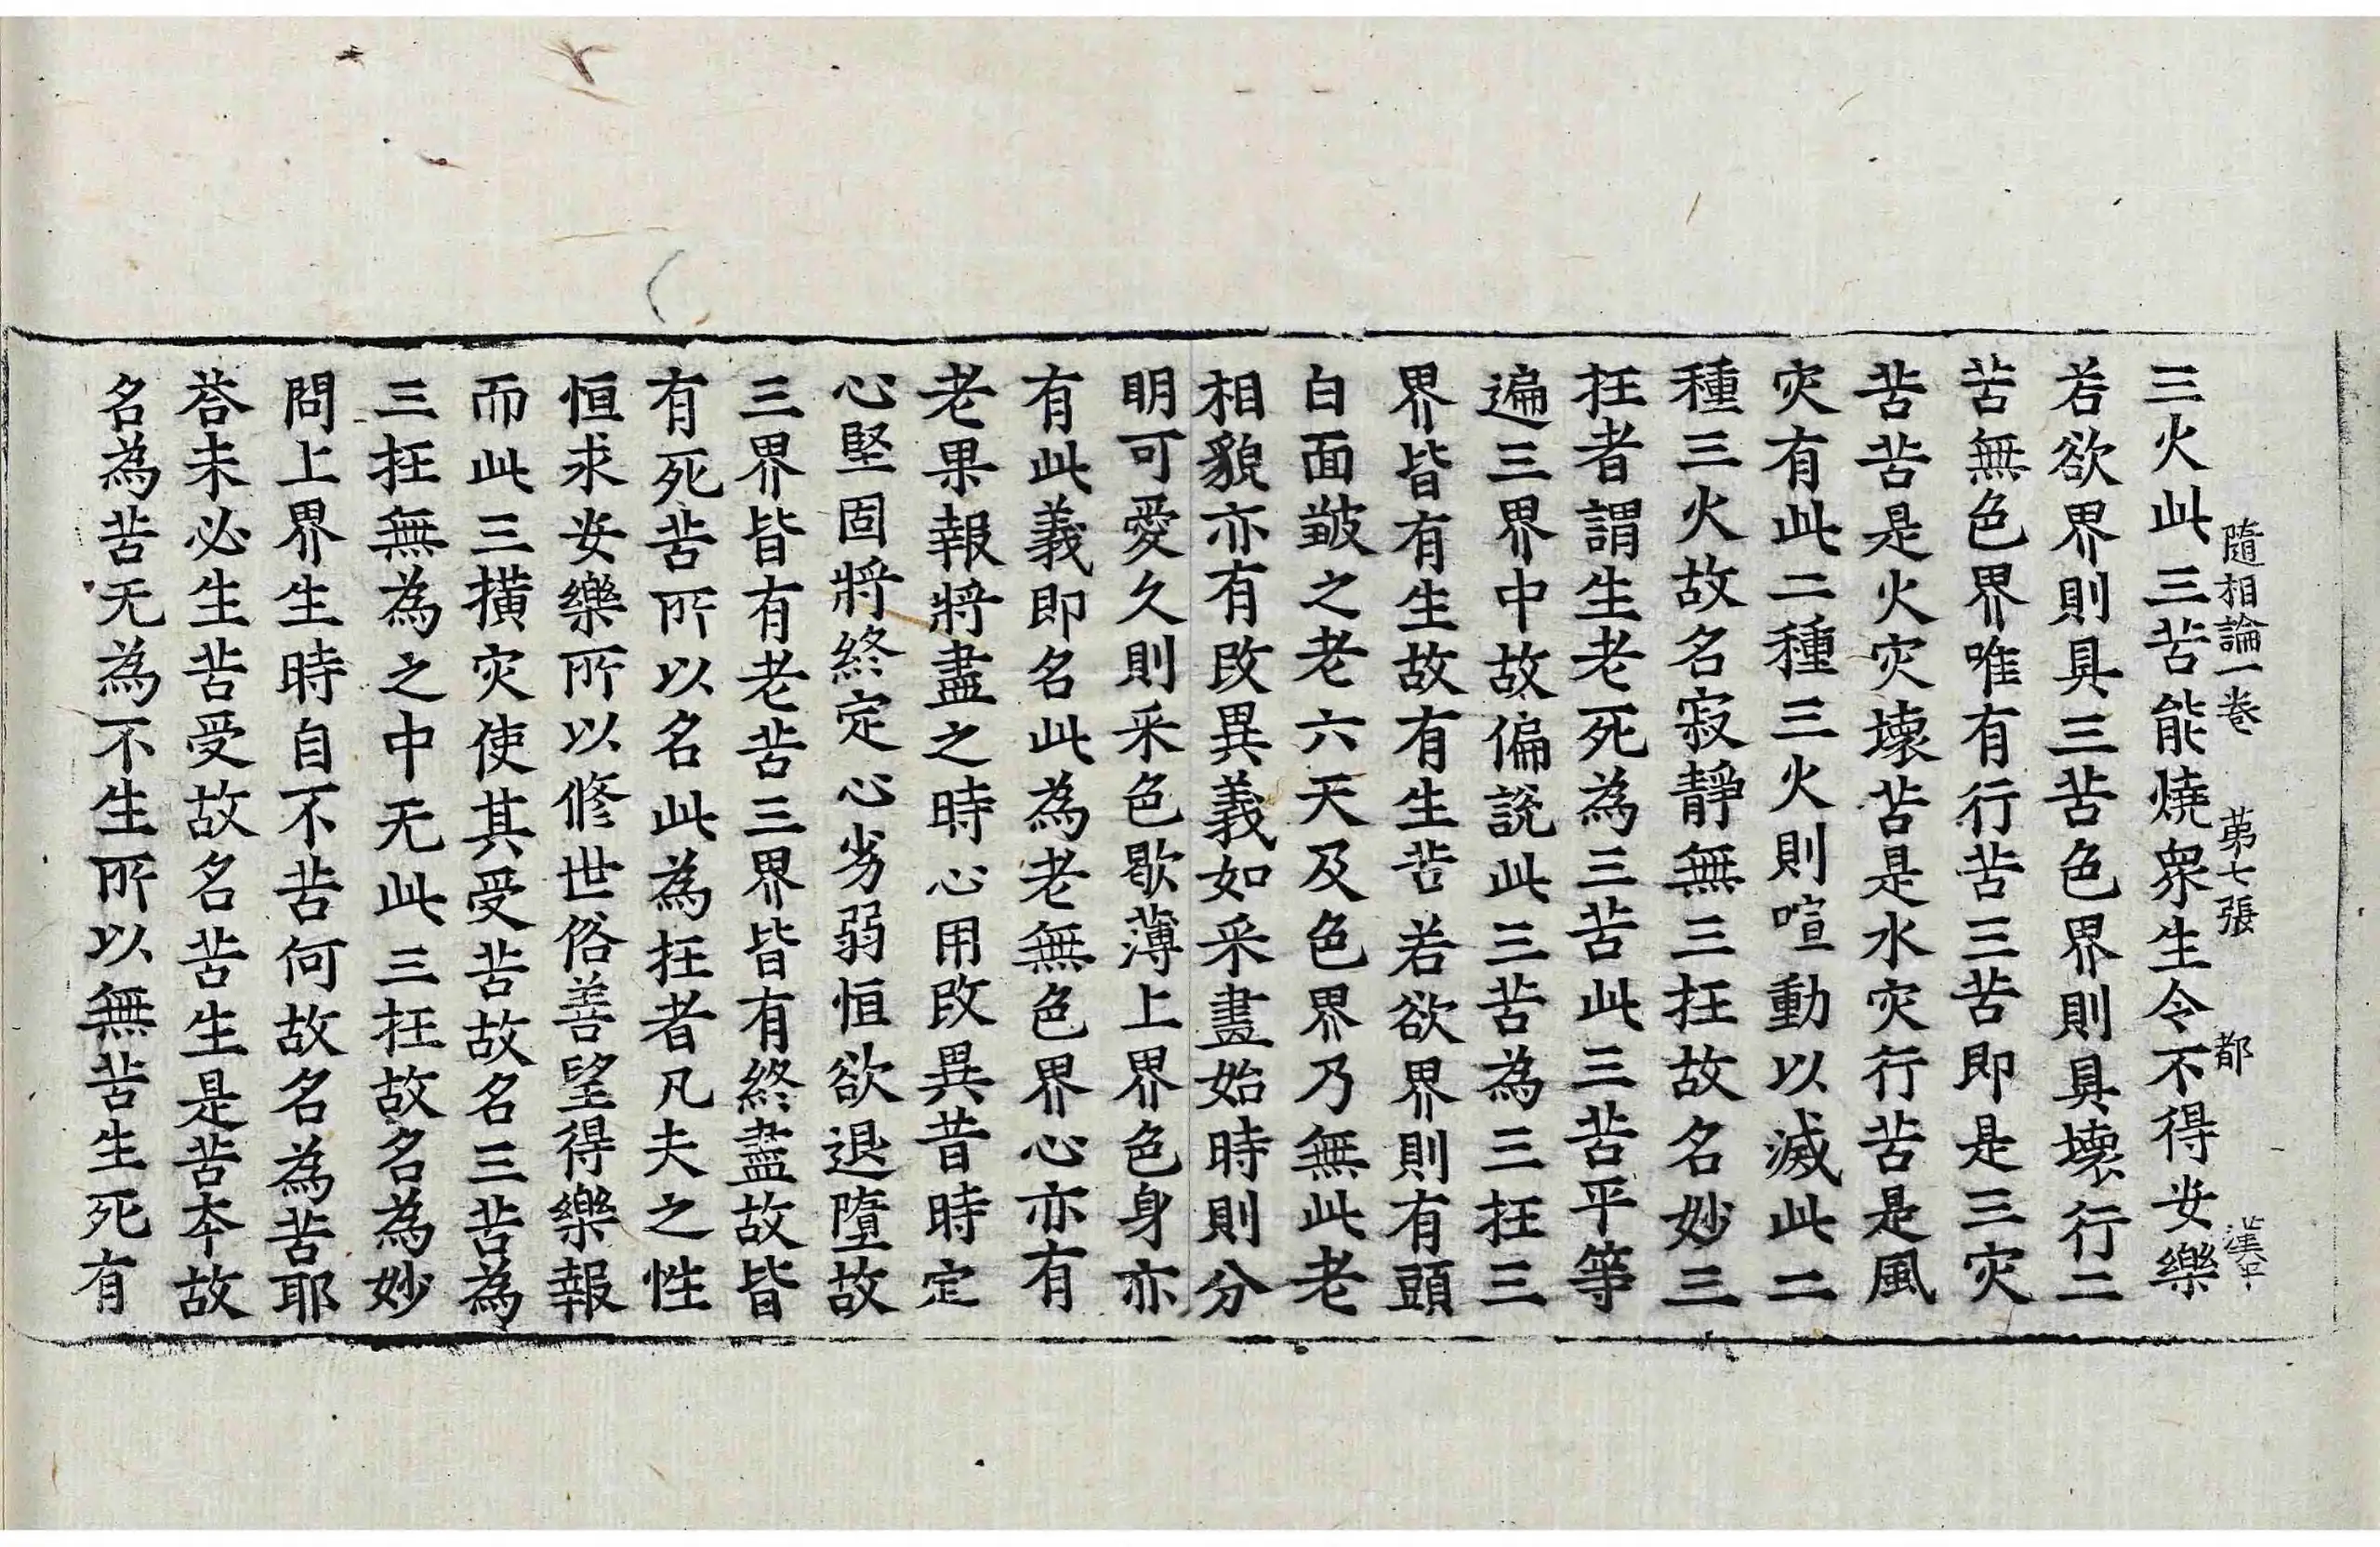 隨相論一卷 苐七張 都 漢平
三火此三苦能燒衆生令不得安樂
若欲界則具三苦色界則具壞行二
苦無色界唯有行苦三苦即是三灾
苦苦是火灾壞苦是水灾行苦是風
灾有此二種三火則喧動以滅此二
種三火故名寂靜無三抂故名妙三
抂者謂生老死為三苦此三苦平等
遍三界中故偏說此三苦為三抂三
界皆有生故有生苦若欲界則有頭
白面皺之老六天及色界乃無此老
相貌亦有改異義如采畫始時則分
明可愛久則采色歇薄上界色身亦
有此義即名此為老無色界心亦有
老果報將盡之時心用改異昔時定
心堅固將終定心劣弱恒欲退墮故
三界皆有老苦三界皆有終盡故皆
有死苦所以名此為抂者凡夫之性
恒求安樂所以修世俗善望得樂報
而此三撗灾使其受苦故名三苦為
三抂無為之中无此三抂故名為妙
問上界生時自不苦何故名為苦耶
荅未必生苦受故名苦生是苦夲故
名為苦无為不生所以無苦生死有